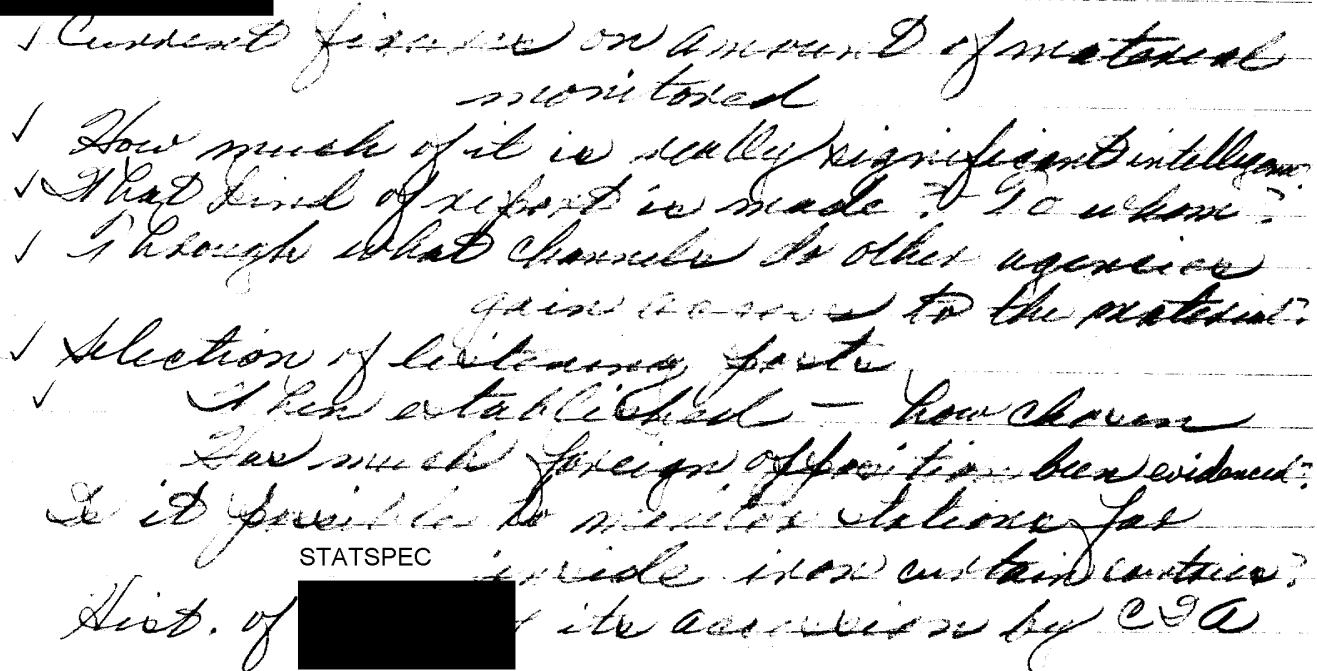 ✓ Current figures on amount of material
monitored
✓ How much of it is really significant intelligence?
✓ What kind of report is made? To whom?
✓ Through what channels do other agencies
gain access to the material?
✓ Selection of listening posts
✓ When established - how chosen
Has much foreign opposition been evidenced?
Is it possible to monitor stations far
STATSPEC
inside iron curtain countries?
Hist. of its by CIA